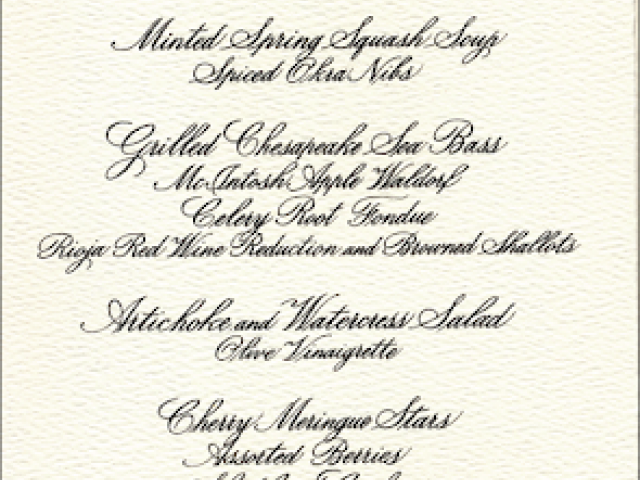 Minted Spring Squash Soup
Spiced Okra Nibs
Grilled Chesapeake Sea Bass
McIntosh Apple Waldorf
Celery Root Fondue
Rioja Red Wine Reduction and Browned Shallots
Artichoke and Watercress Salad
Olive Vinaigrette
Cherry Meringue Stars
Assorted Berries